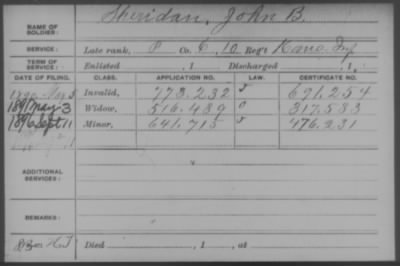 NAME OF SOLDIER: Sheridan, John B.
SERVICE: Late rank, P Co. C, 10 Reg't Kans. Inf
TERM OF SERVICE: Enlisted , 1 Discharged , 1
DATE OF FILING. CLASS. APPLICATION NO. LAW. CERTIFICATE NO.
Invalid, 773.232 691.254
1891 May 3 Widow, 516.489 317.583
1896 Sept 11 Minor, 641.715 476.231
ADDITIONAL SERVICES:
REMARKS:
Died , 1 , at